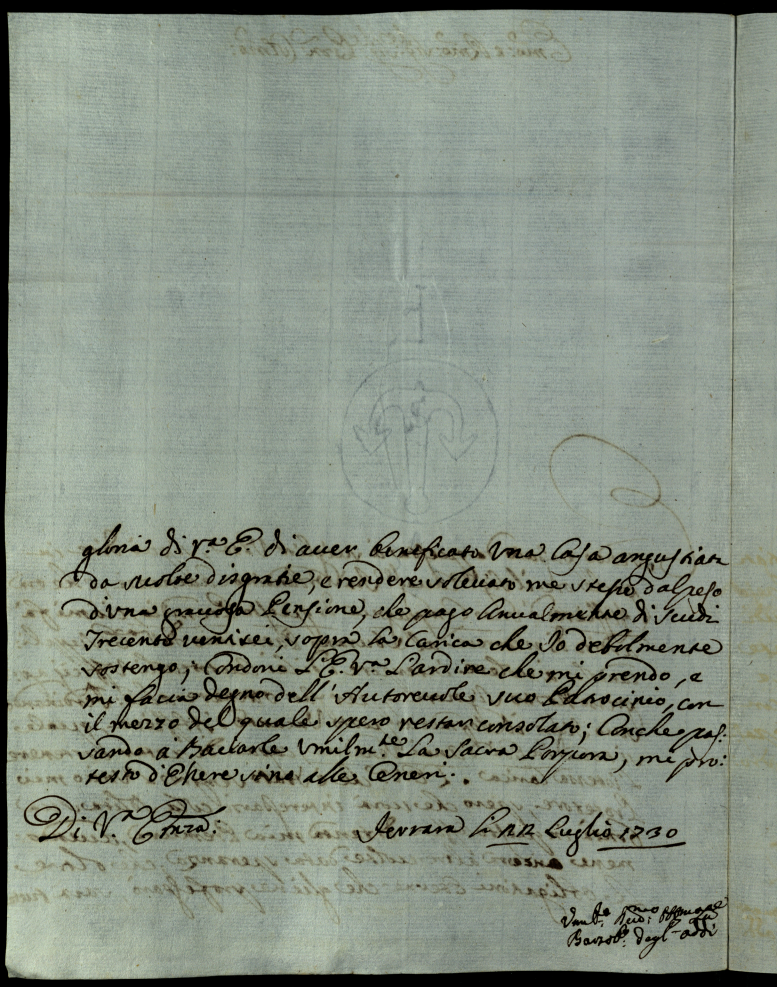 gloria di V.ª E. di auer beneficato una Casa angustiata
da suolte disgratie, e rendere soleuato me stesso dal peso
d'una grauosa Pensione, che pago Annualmente di Scudi
Trecento uentisei, sopra la Carica che Io debolmente
sostengo; Condoni L'E. V.ª L'ardire che mi prendo, e
mi facia degno dell'Autoreuole suo Patrocinio, con
il mezzo del quale spero restar consolato; Con che pas:
sando à Baciarle Umilm.te La Sacra Porpora, mi pro:
testo d'Essere sino alle Ceneri.
Di V.ª Emza:
Ferrara Li 12 Luglio 1730
Deuot.mo
degl'